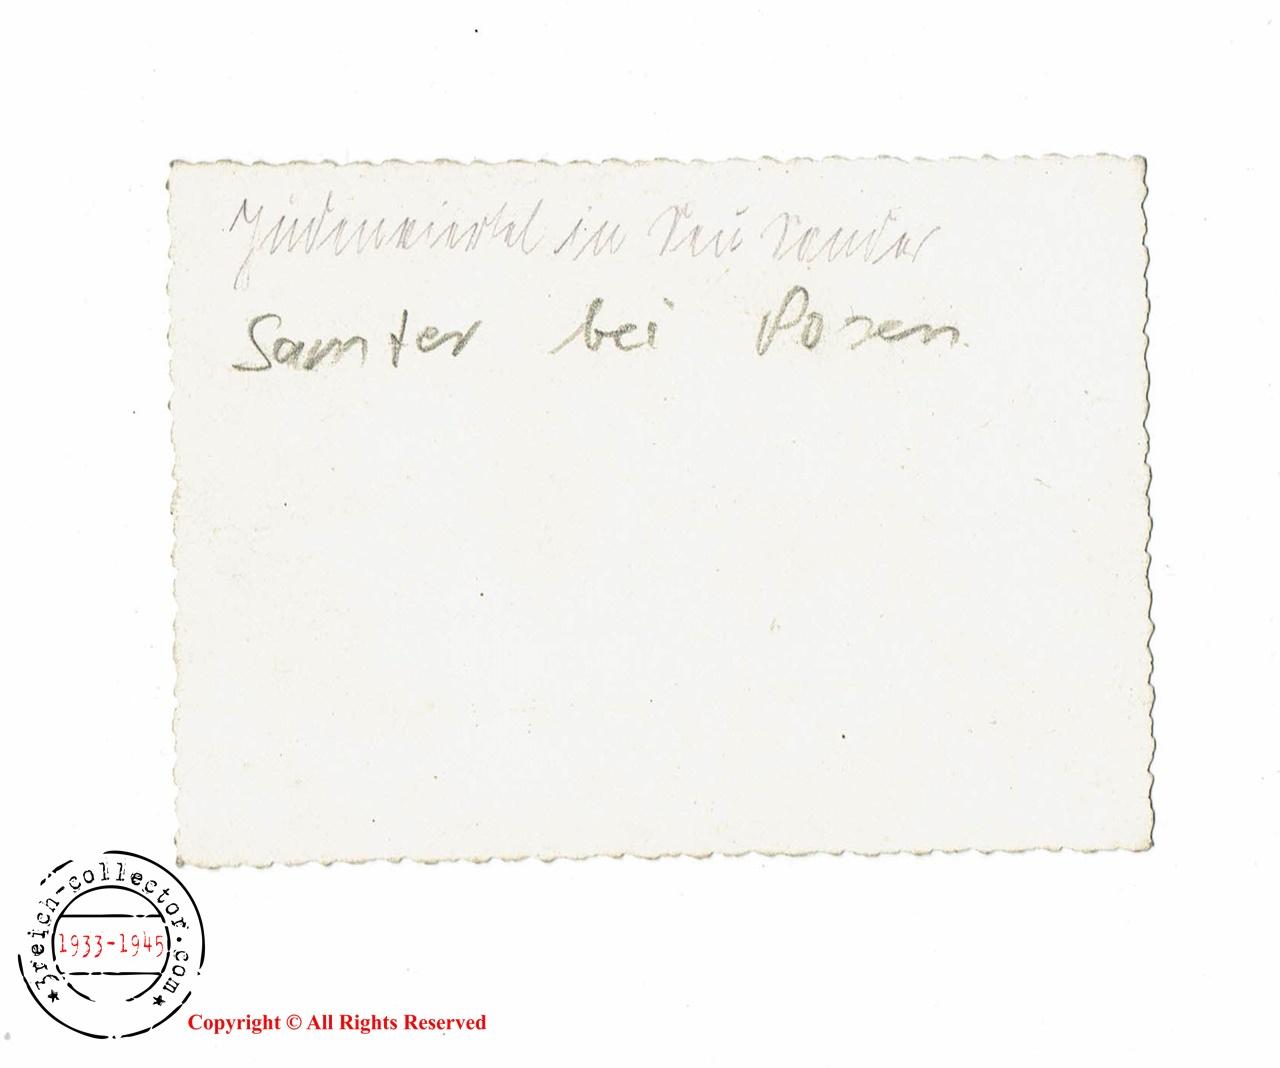 Judenviertel in Neu Sandez
Samter bei Posen
3reich-collector.com
1933-1945
Copyright © All Rights Reserved